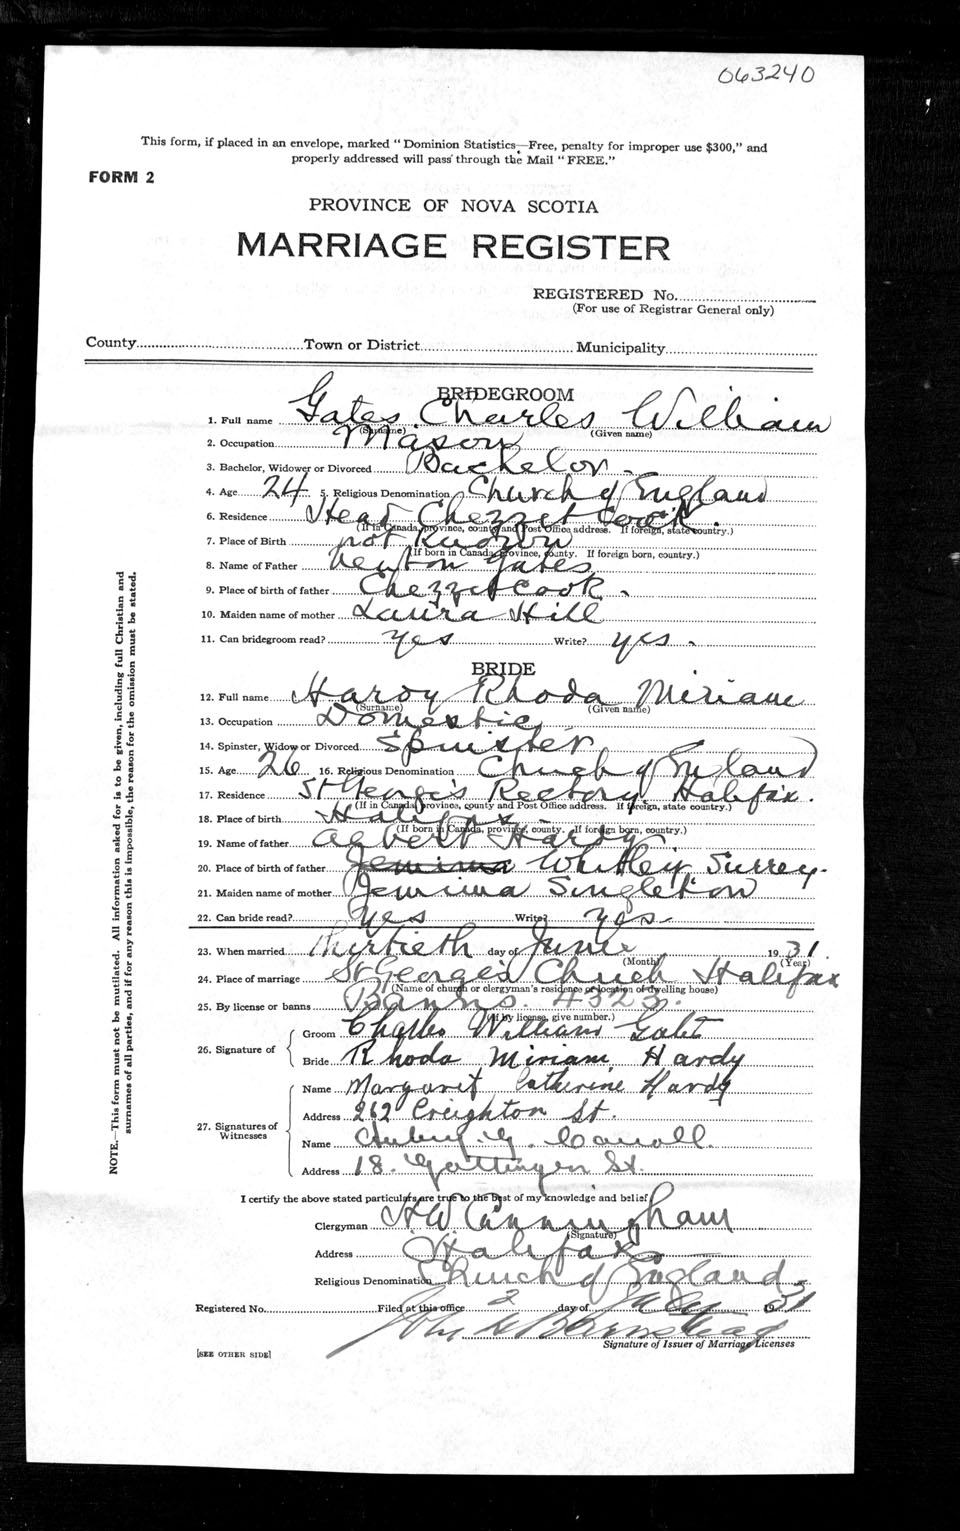 063240
This form, if placed in an envelope, marked "Dominion Statistics—Free, penalty for improper use $300," and
properly addressed will pass through the Mail "FREE."
FORM 2
PROVINCE OF NOVA SCOTIA
MARRIAGE REGISTER
REGISTERED No.
(For use of Registrar General only)
County Town or District Municipality
BRIDEGROOM
1. Full name Gates Charles William
(Surname) (Given name)
2. Occupation Mason
3. Bachelor, Widower or Divorced Bachelor
4. Age 24 5. Religious Denomination Church of England
6. Residence Head Chezzetcook.
(If in Canada, province, county and Post Office address. If foreign, state country.)
7. Place of Birth not Known
(If born in Canada, province, county. If foreign born, country.)
8. Name of Father Newton Gates
9. Place of birth of father Chezzetcook.
10. Maiden name of mother Laura Hill
11. Can bridegroom read? Yes Write? yes.
BRIDE
12. Full name Hardy Rhoda Miriam
(Surname) (Given name)
13. Occupation Domestic
14. Spinster, Widow or Divorced Spinster
15. Age 26 16. Religious Denomination Church of England
17. Residence St George's Rectory Halifax.
(If in Canada, province, county and Post Office address. If foreign, state country.)
18. Place of birth Halifax
(If born in Canada, province, county. If foreign born, country.)
19. Name of father Albert Hardy
20. Place of birth of father Jemima Whitley Surrey.
21. Maiden name of mother Jemima Singleton
22. Can bride read? Yes Write? yes.
23. When married Thirtieth day of June 1931
(Month) (Year)
24. Place of marriage St George's Church Halifax
(Name of church or clergyman's residence or location of dwelling house)
25. By license or banns Banns. 4323.
(If by license, give number.)
26. Signature of
Groom Charles William Gates
Bride Rhoda Miriam Hardy
27. Signatures of Witnesses
Name Margaret Catherine Hardy
Address 262 Creighton St.
Name Carroll
Address 18. Gottingen St.
I certify the above stated particulars are true to the best of my knowledge and belief
Clergyman H W Cunningham
(Signature)
Address Halifax
Religious Denomination Church of England
Registered No. Filed at this office 2 day of July 1931
John
Signature of Issuer of Marriage Licenses
[SEE OTHER SIDE]
NOTE.—This form must not be mutilated. All information asked for is to be given, including full Christian and
surnames of all parties, and if for any reason this is impossible, the reason for the omission must be stated.